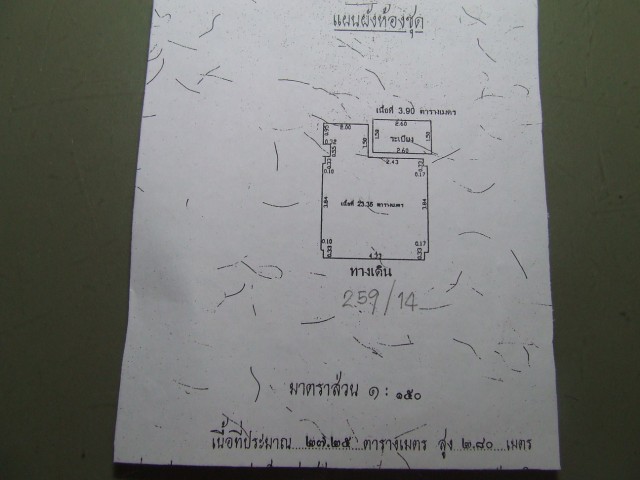 แผนผังห้องชุด
เนื้อที่ 3.90 ตารางเมตร
2.60
2.00
1.50
ระเบียง
1.50
1.50
0.95
2.60
0.55
2.43
0.10
0.17
3.84
เนื้อที่ 23.35 ตารางเมตร
3.84
0.10
0.17
0.33
4.77
0.33
ทางเดิน
259/14
มาตราส่วน ๑ : ๑๕๐
เนื้อที่ประมาณ ๒๗.๒๕ ตารางเมตร สูง ๒.๘๐ เมตร